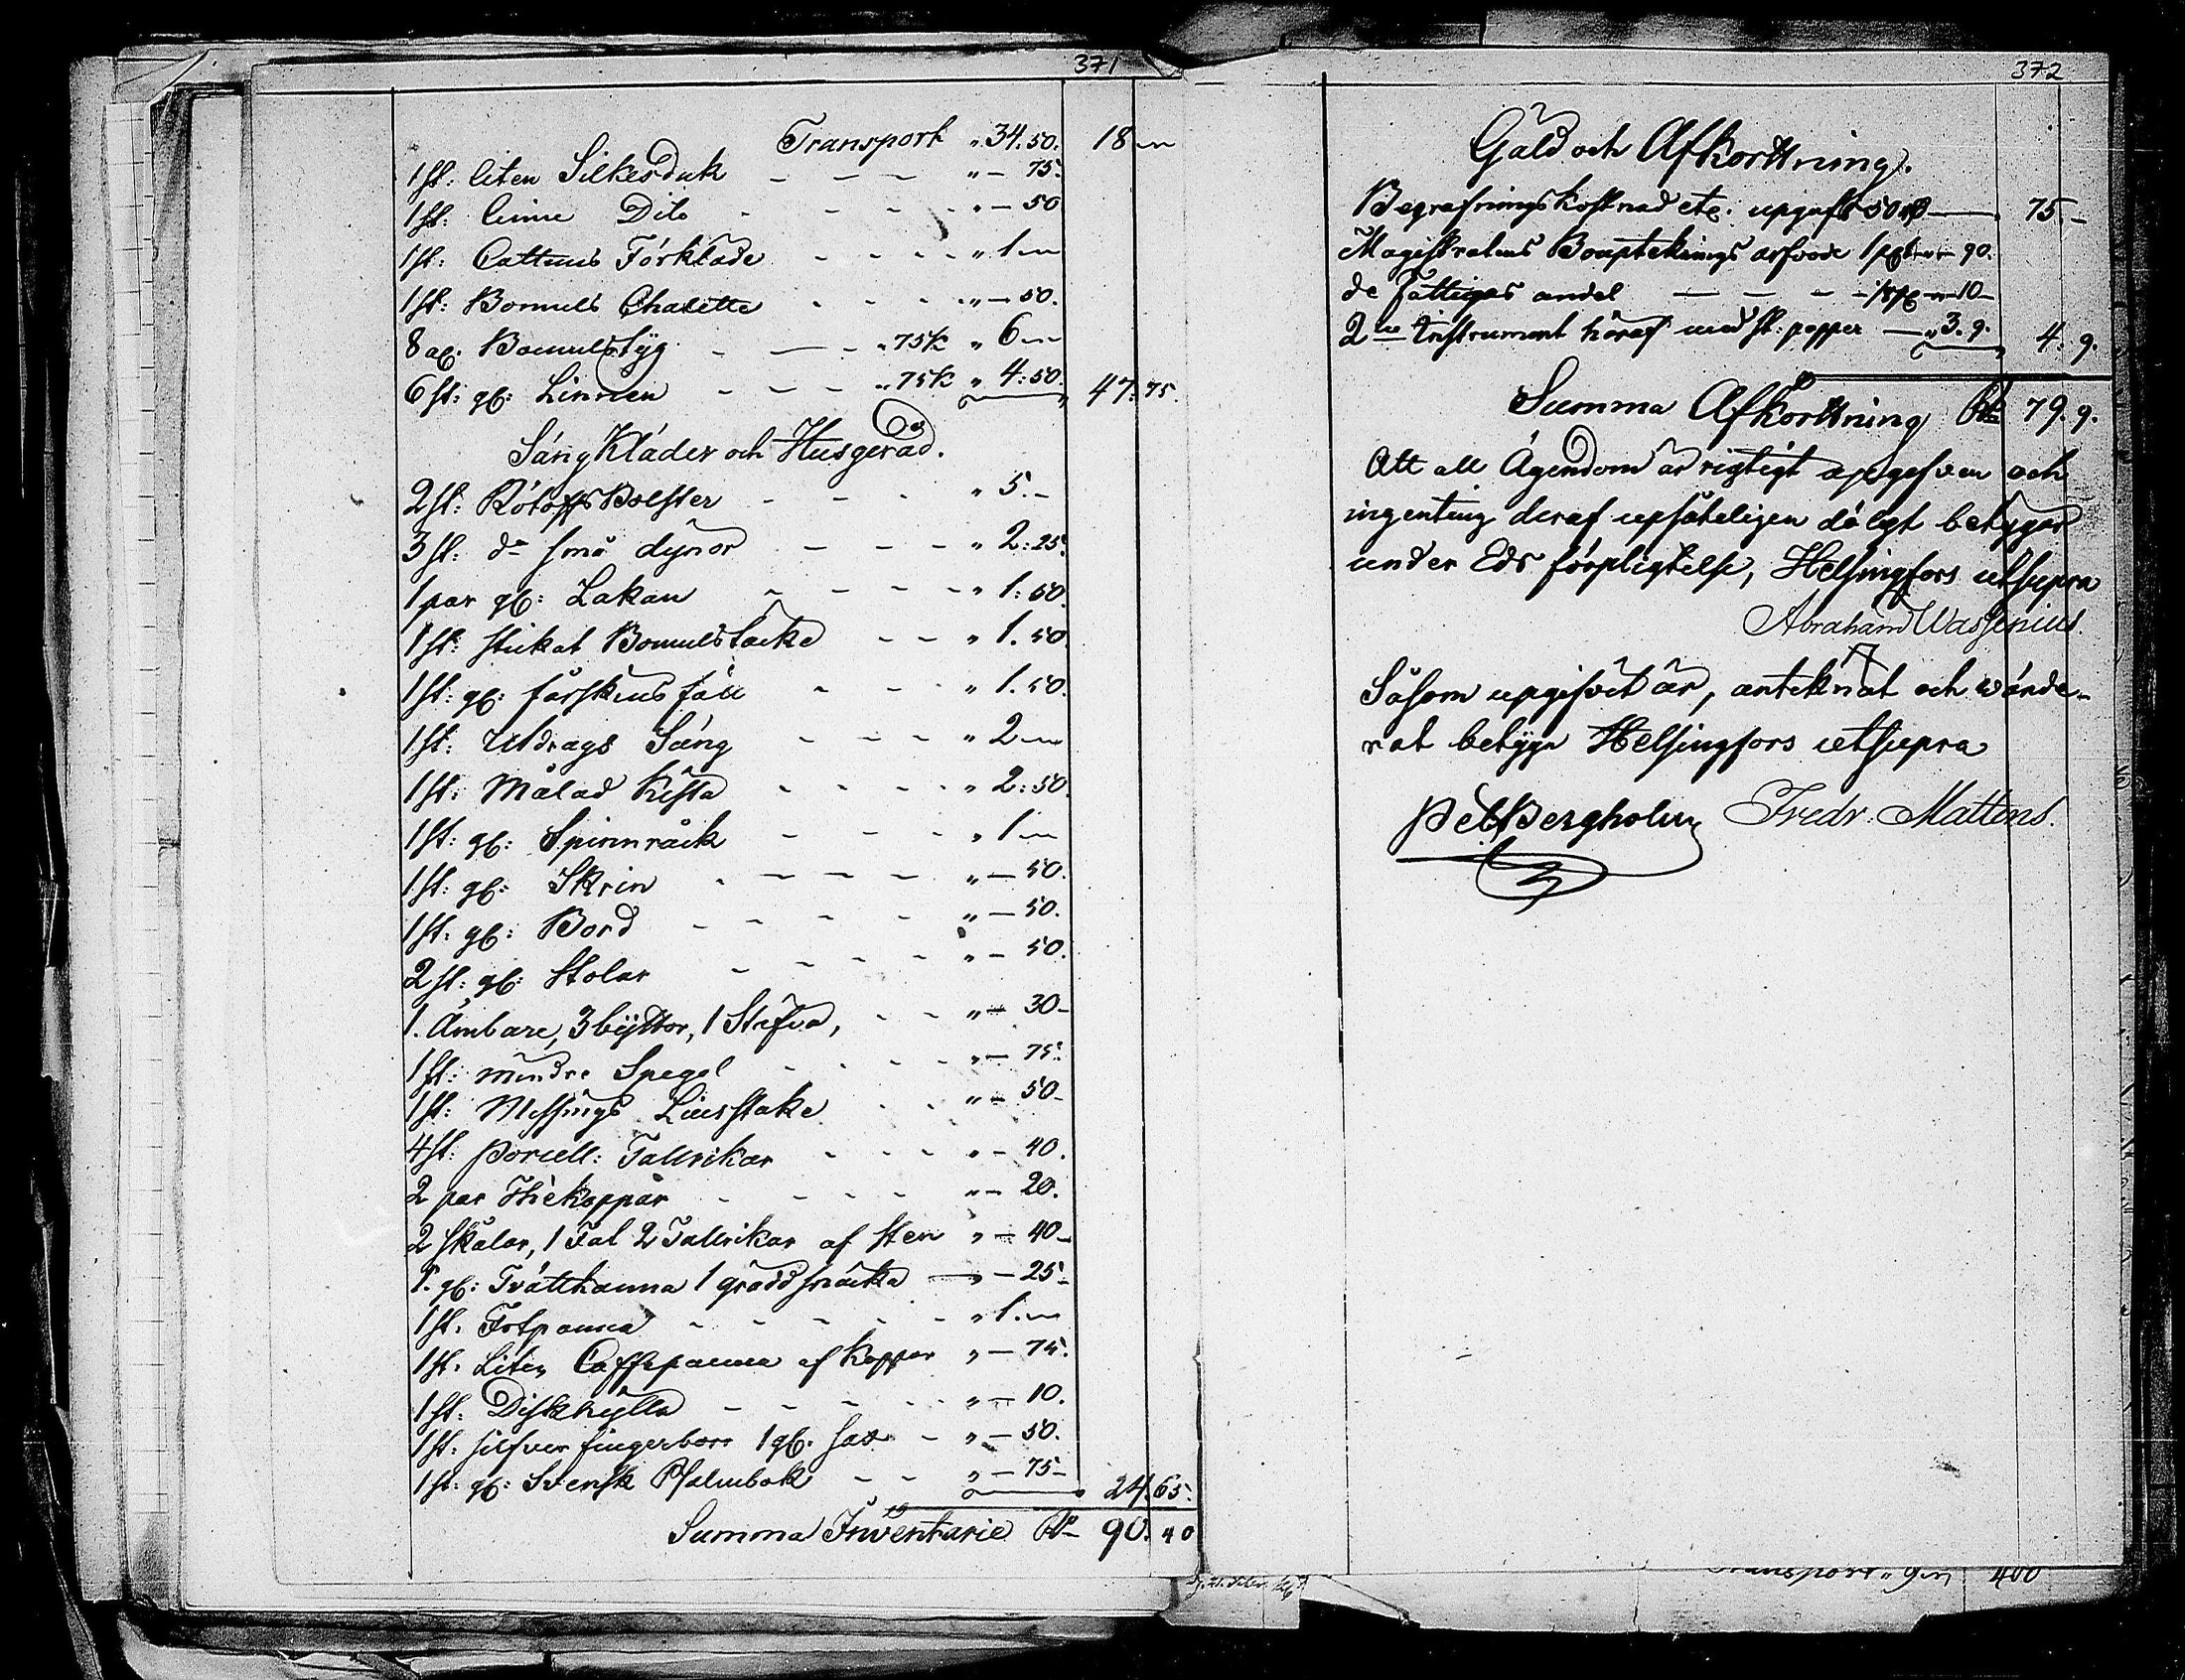 371
Transport „ 34. 50. 18 „
1 st: liten Silkesduk „ — 75.
1 st: linne Dito „ — 50
1 st: Cattuns Förkläde „ 1 „
1 st: Bomuls Chalette „ — 50.
8 al. Bomulstyg „ 75 K „ 6 „
6 st: gl: Linnen „ 75 K „ 4: 50. 47. 75.
Sängkläder och Husgeråd.
2 st: Bolster „ 5. –
3 st: do små dynor „ 2: 25.
1 par gl: Lakan „ 1: 50.
1 st: stickat Bomulstäcke „ 1. 50
1 st: gl: fårskins fäll „ 1. 50.
1 st: Utdrags Säng „ 2 „
1 st: Målad Kista „ 2: 50.
1 st: gl: Spinnråck „ 1 „
1 st: gl: Skrin „ — 50.
1 st: gl: Bord „ — 50.
2 st: gl: Stolar „ — 50.
1. Ämbare, 3 byttor, 1 Stäfva, „ — 30 –
1 st: mindre Spegel „ — 75.
1 st: Messings Liusstake „ — 50 –
4 st: Porcell: Tallrikar „ — 40.
2 par Thekoppar „ — 20.
2 Skålar, 1 Fat 2 Tallrikar af Sten „ — 40 –
1. gl: Tvättkanna 1 gräddsnäcka „ — 25 –
1 st. Fotpanna „ 1. „
1 st. Liten Caffepanna af Koppar „ — 75.
1 st: Diskhylla „ — 10.
1 st. silfver fingerborr 1 gl. sax „ — 50.
1 st. gl: Svensk Psalmbok „ — 75 – 24. 65.
Summa Inventarie Rb 90. 40
372
Gäld och Afkorttning.
Begrafningskostnad etc. upgafs 50 — 75 –
Magistratens Bouptekнings arfvode 90.
de fattigas andel 10 –
2ne Instrument häraf med st: papper — „ 3. 9. 4. 9.
Summa Afkorttning Rb 79. 9.
Att all Ägendom är rigtigt upgifven och
ingenting deraf upsåteligen dålgt betygar
under Eds förpligtelse, Helsingfors utsupra
Abraham Wassenius.
Såsom upgifvit är, anteknat och wärde-
rat betyga Helsingfors utsupra
Pet Bergholm Fredr: Mattens.
Transport „ 9 „ 400